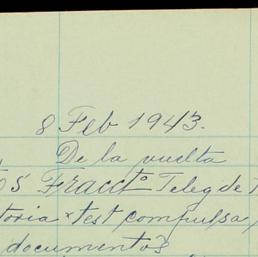 8 Feb 1943.
De la vuelta
Fracc<sup>to</sup> Teleg de
toria x test compulsa
documentos